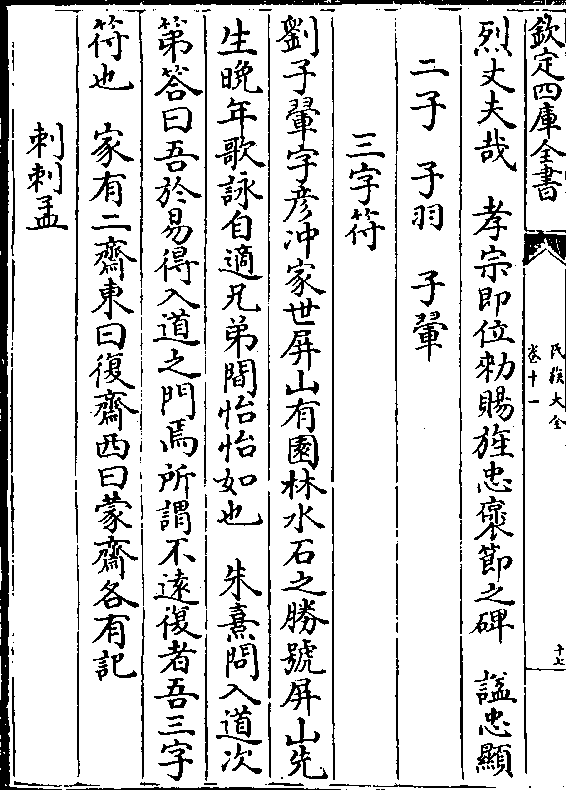 欽定四庫全書
氏族大全
卷十一
十七
烈丈夫哉　孝宗即位勑賜旌忠襃節之碑　諡忠顯
二子　子羽　子翬
三字符
劉子翬字彦冲家世屏山有園林水石之勝號屏山先
生晚年歌詠自適兄弟間怡怡如也　朱熹問入道次
第答曰吾於易得入道之門焉所謂不遠復者吾三字
符也　家有二齋東曰復齋西曰蒙齋各有記
刺刺孟